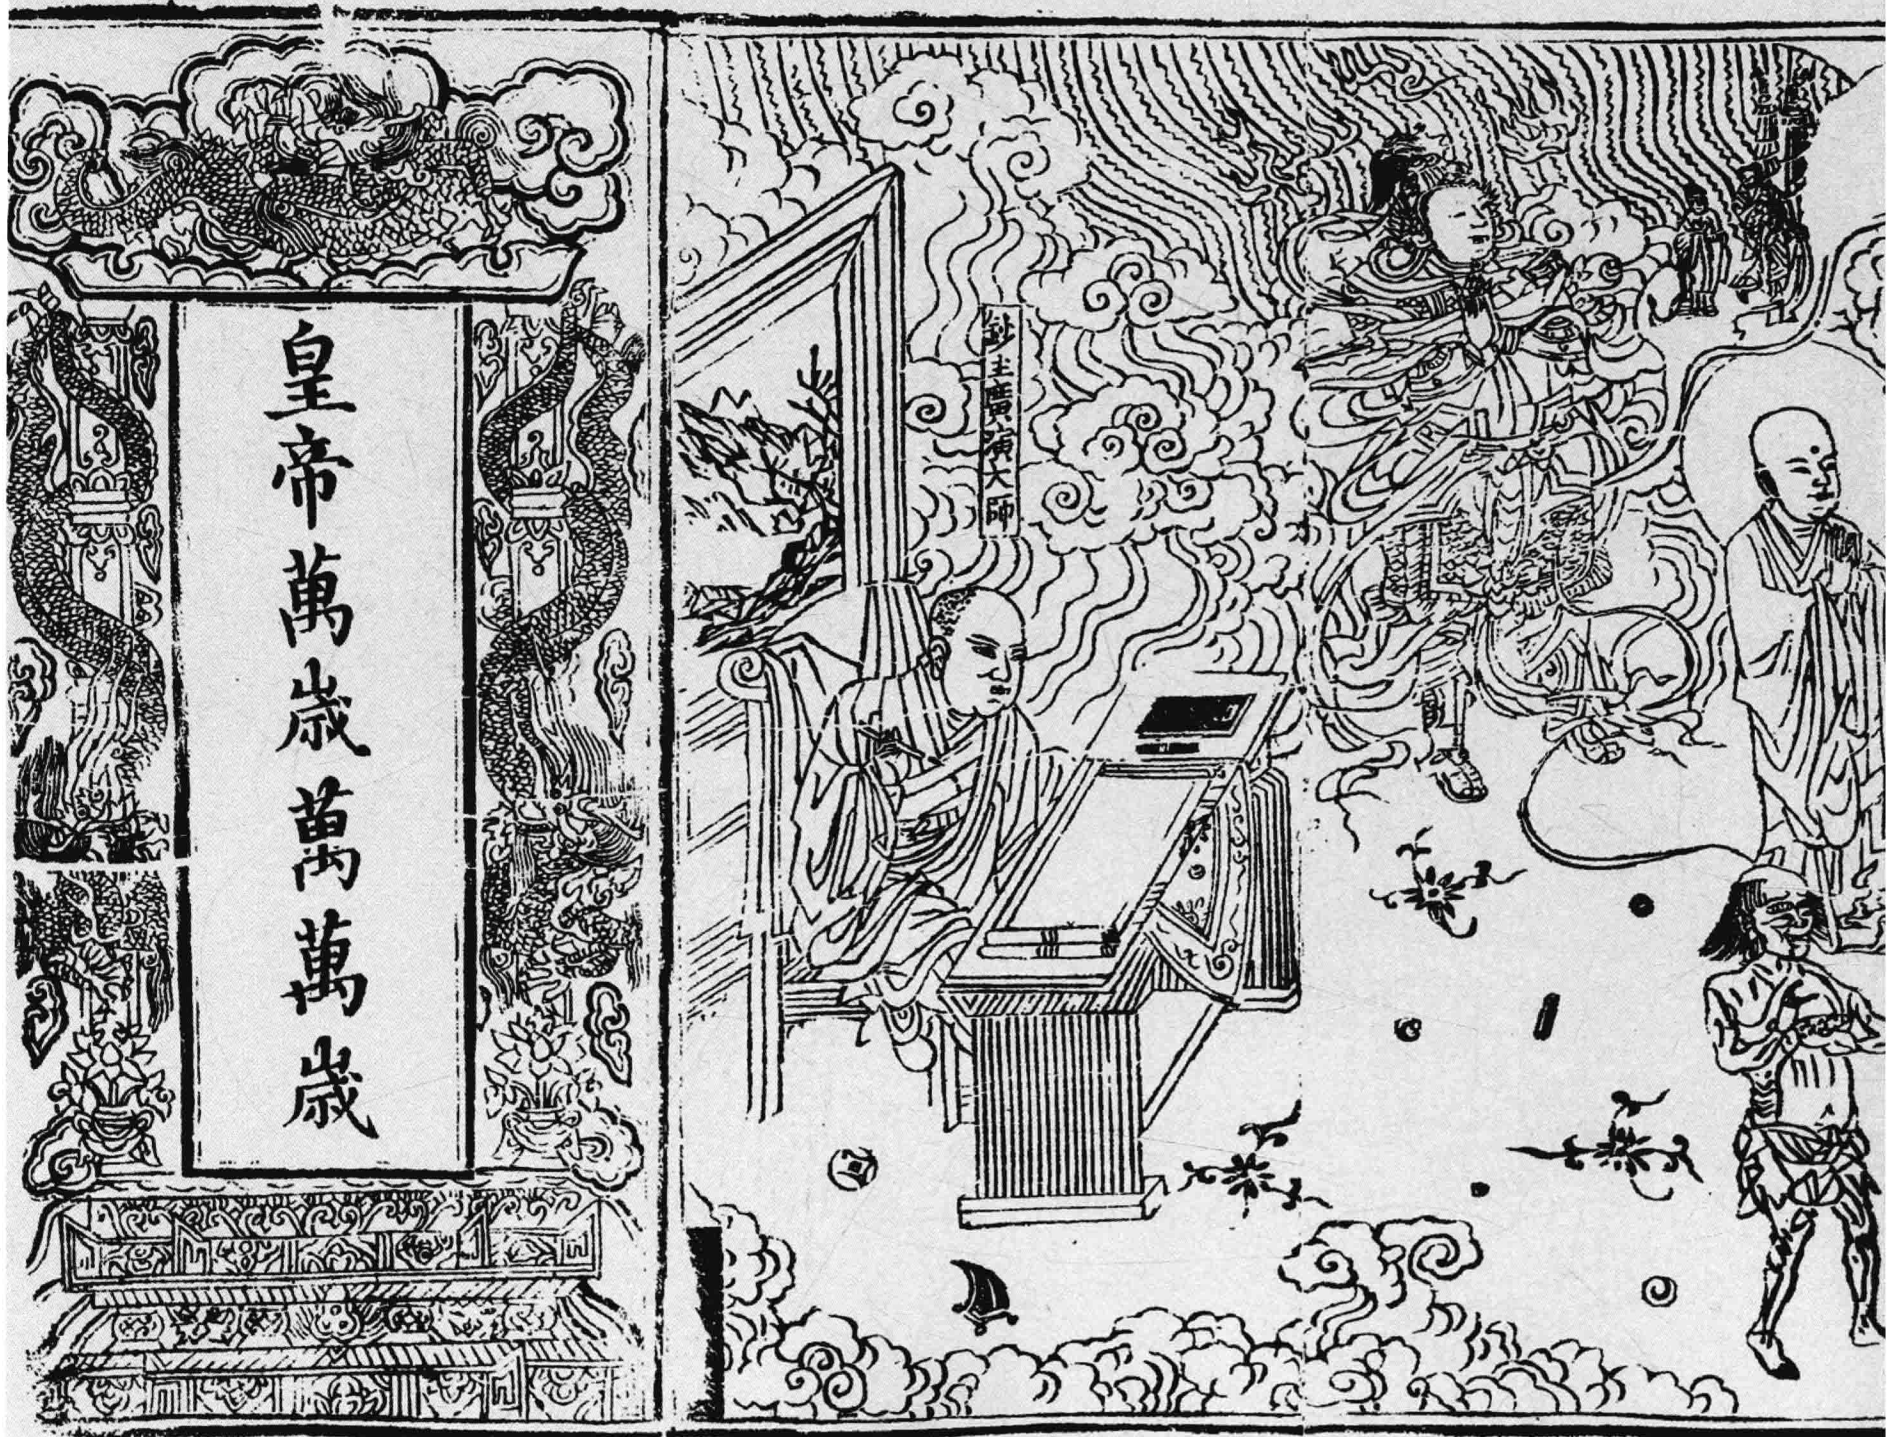 皇帝萬歲萬萬歲
鈔主廣演大師